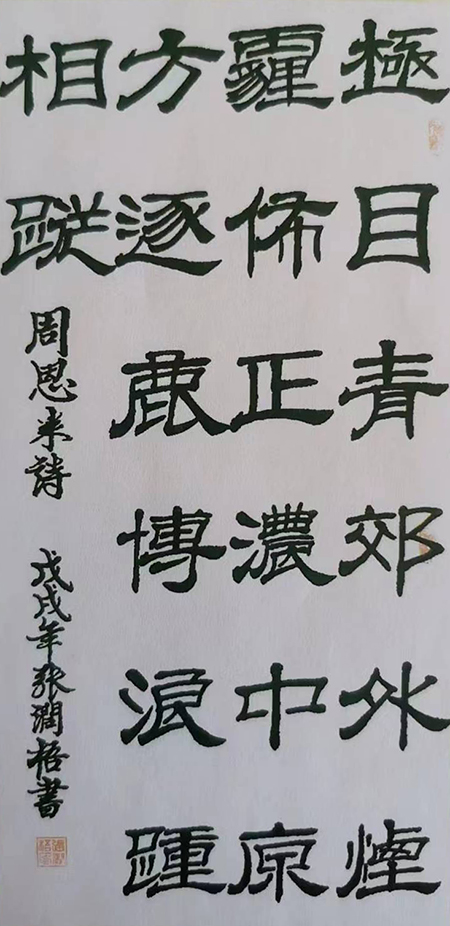 極目青郊外煙
霾佈正濃中原
方逐鹿博浪踵
相蹤
周恩来詩 戊戌年张潤書